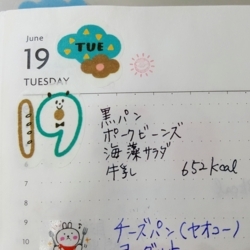 June
19
TUESDAY
TUE
19
黒パン
ポークビーンズ
海藻サラダ
牛乳 652kcal
チーズパン(セオコー)
ヨーグルト